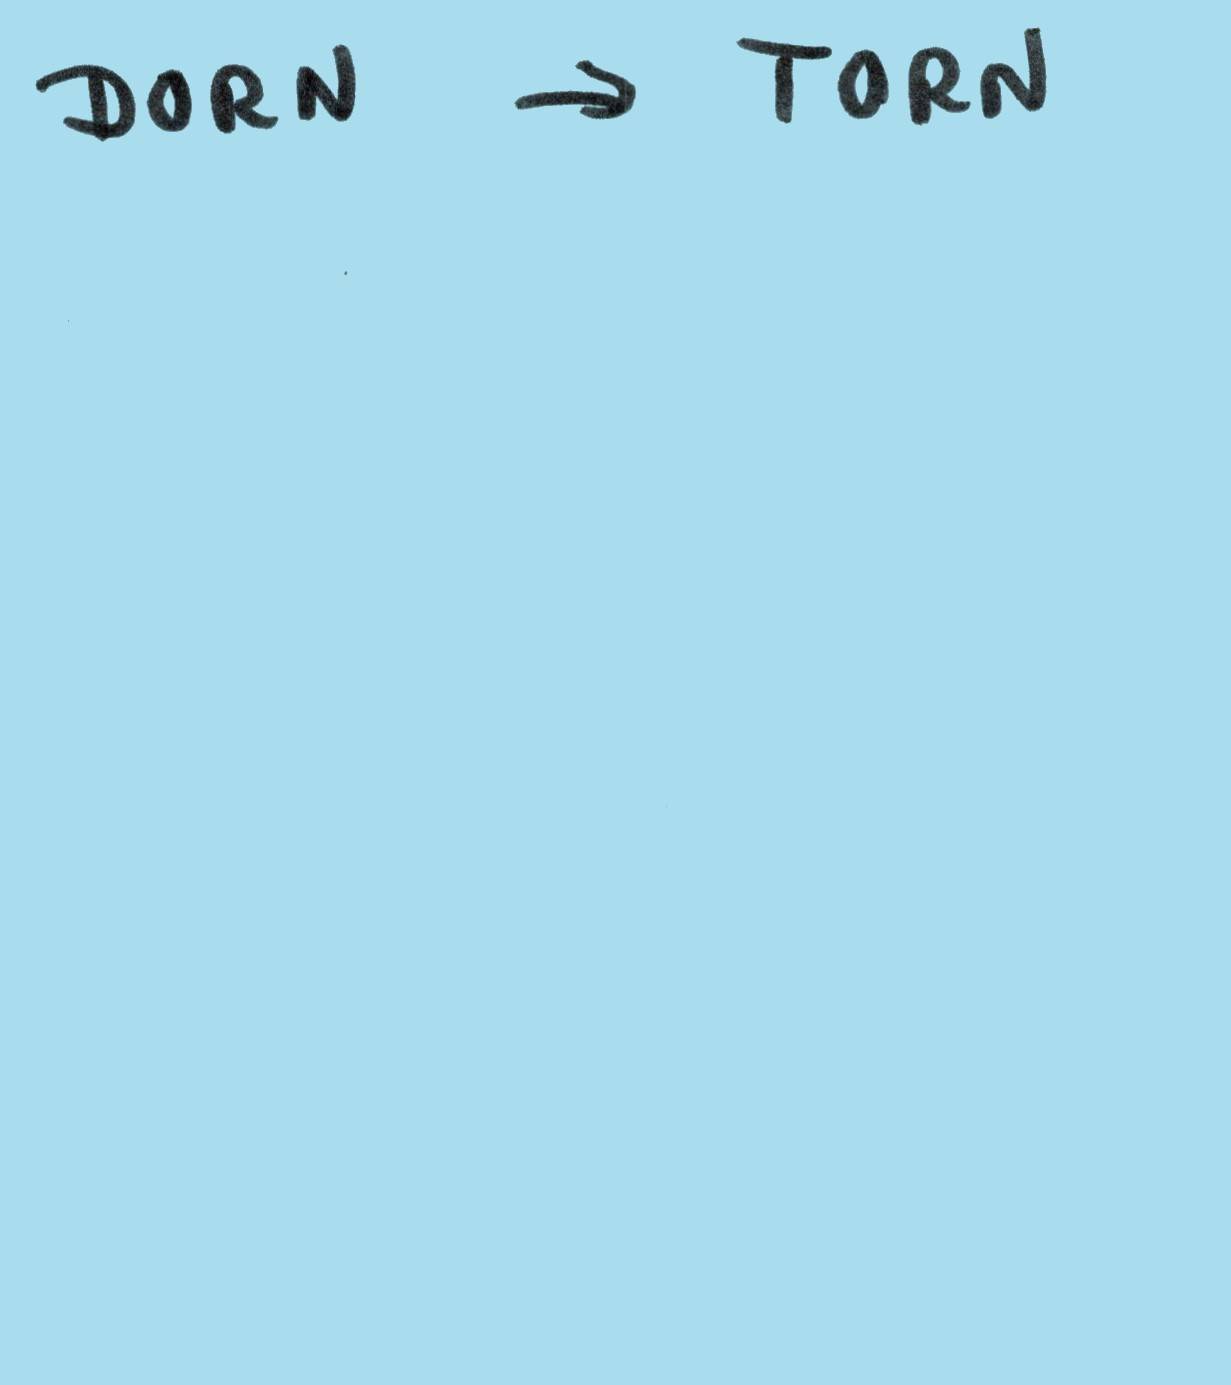 DORN → TORN